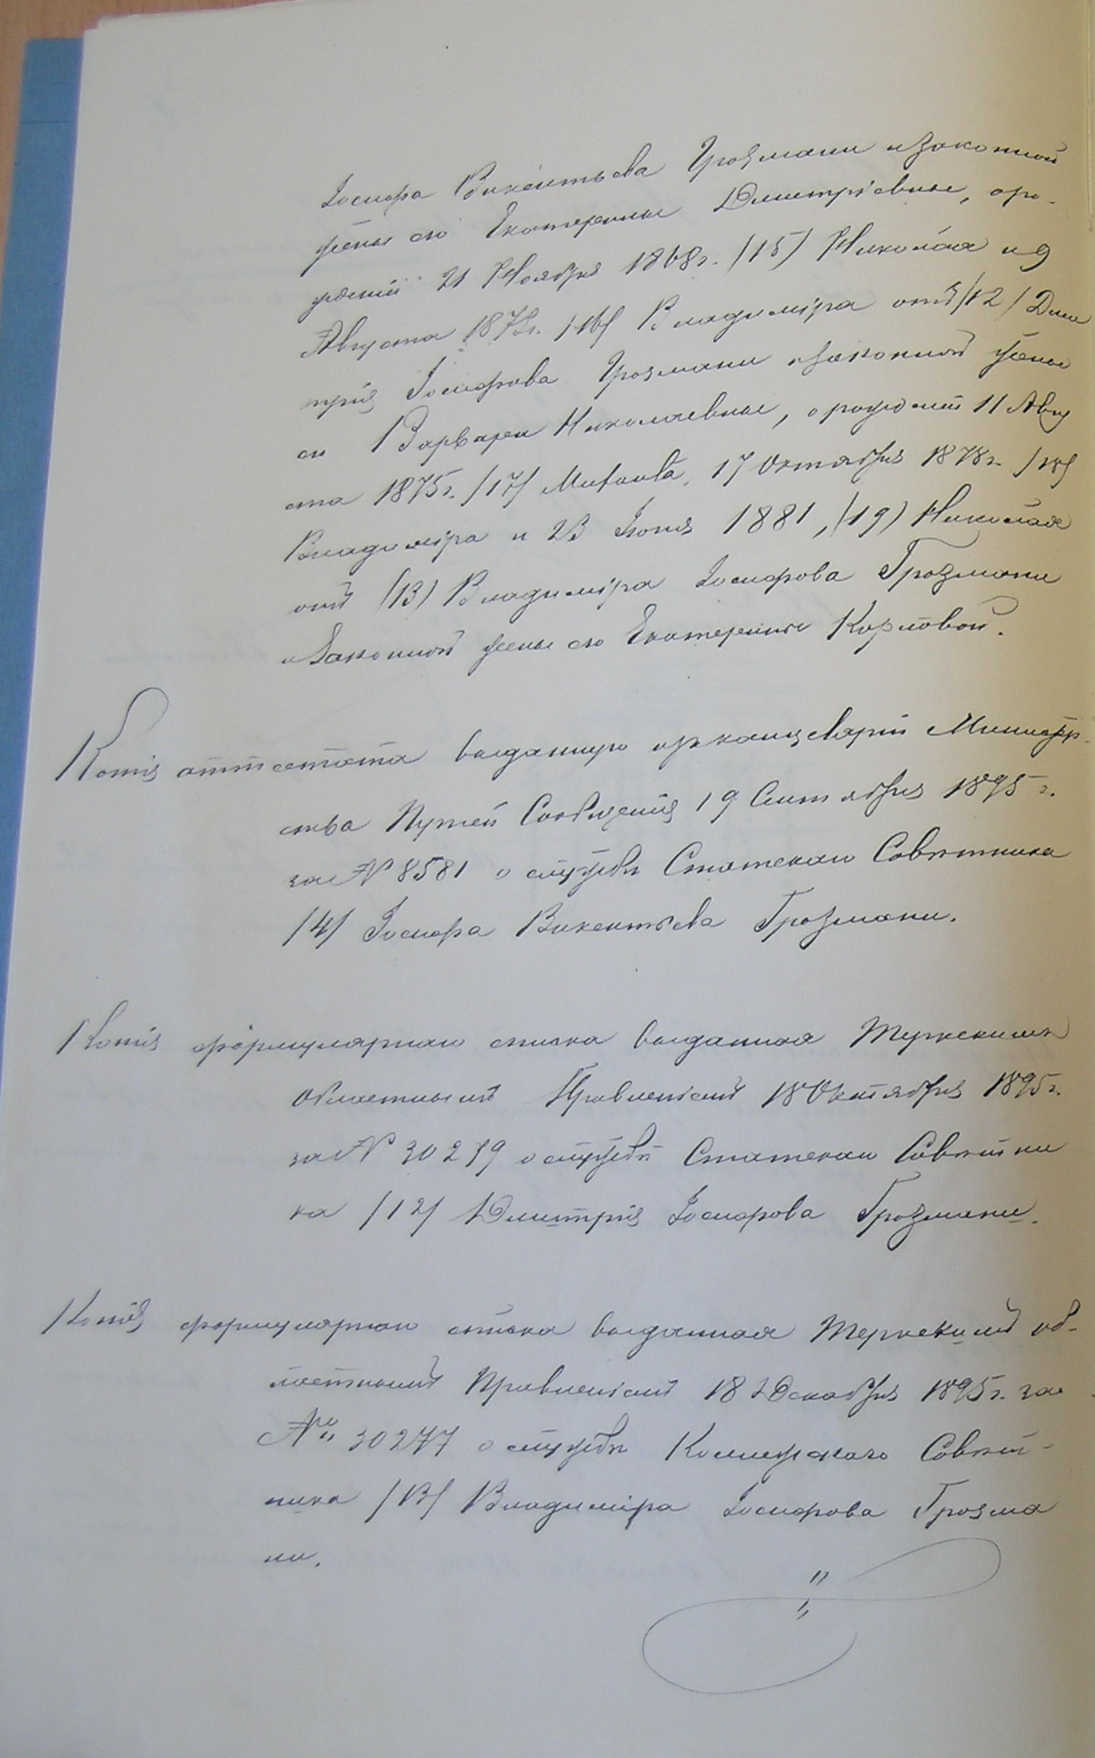 Іосифа Викентьева Грозмани и законной
жены его Екатерины Димитріевны, о ро-
жденіи 21 Ноября 1868 г. /15/ Николая и 9
Августа 187 г. /16/ Владиміра отъ /12/ Дми
трія Іосифова Грозмани и законной жены
его Варвары Николаевны, о рожденіи 11 Авгу
ста 1875 г. /17/ Михаила, 17 Октября 1878 г. /18/
Владиміра и 23 Іюня 1881, /19/ Николая
отъ /13/ Владиміра Іосифова Грозмани
и законной жены его Екатерины Карловой.
Копія аттестата выданнаго изъ канцеляріи Министер-
ства Путей Сообщенія 19 Сентября 1895 г.
за № 8581 о службѣ Статскаго Совѣтника
/4/ Іосифа Викентьева Грозмани.
Копія формулярнаго списка выданная Терскимъ
Областнымъ Правленіемъ 18 Октября 1895 г.
за № 30279 о службѣ Статскаго Совѣтни
ка /12/ Димитрія Іосифова Грозмани.
Копія формулярнаго списка выданная Терскимъ об-
ластнымъ Правленіемъ 18 Декабря 1895 г. за
№ 30277 о службѣ Коллежскаго Совѣт-
ника /13/ Владиміра Іосифова Грозма
ни.